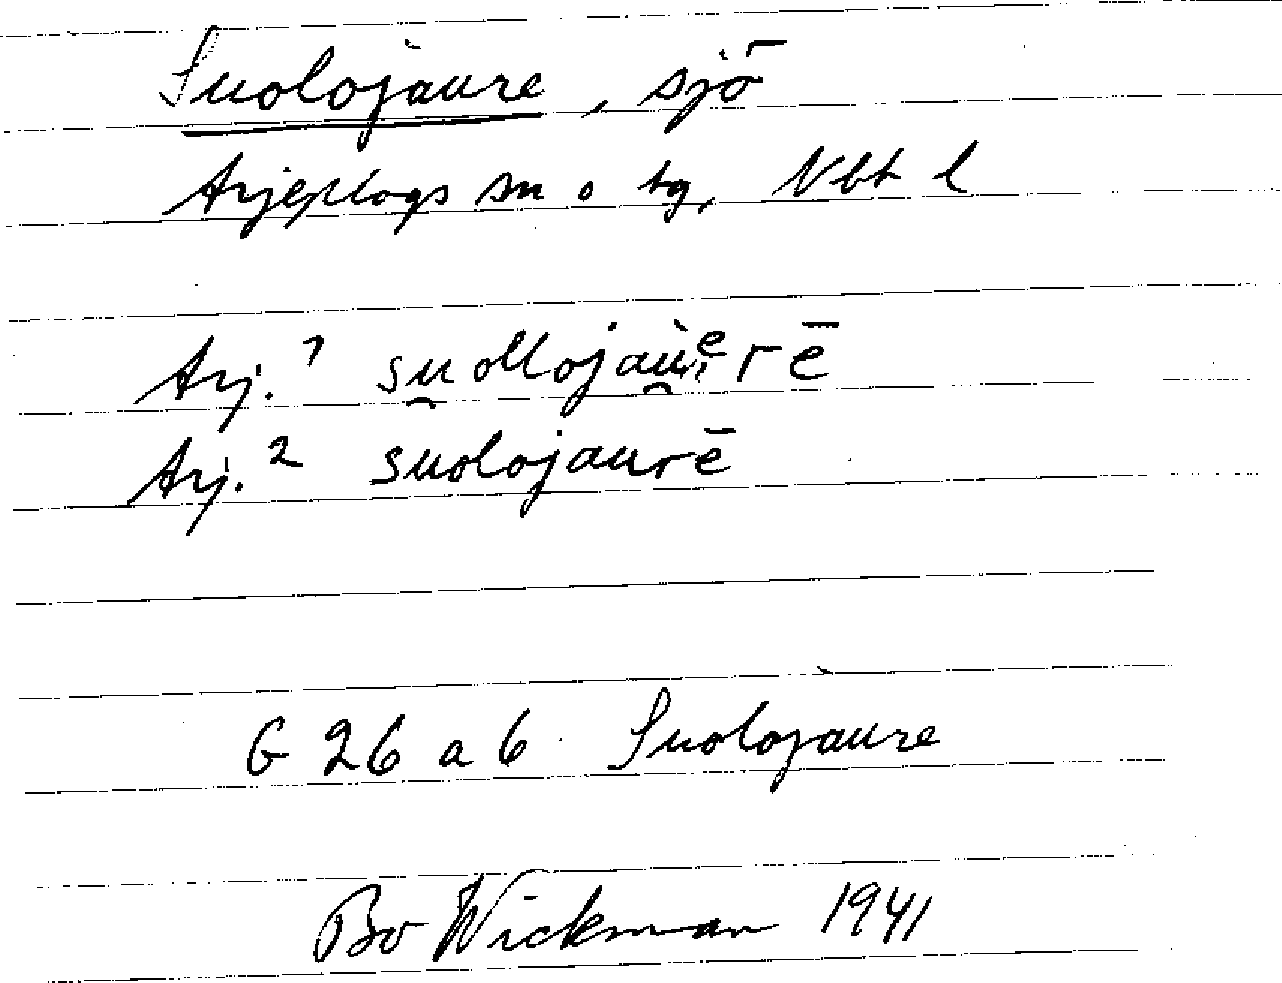 Suolojaure, sjö
Arjeplogs sn o tg, Nbt l
Arj.¹ su̯ollojau̯ᵉrē
Arj.² suolojaurē
G 26 a 6 Suolojaure
Bo Wickman 1941